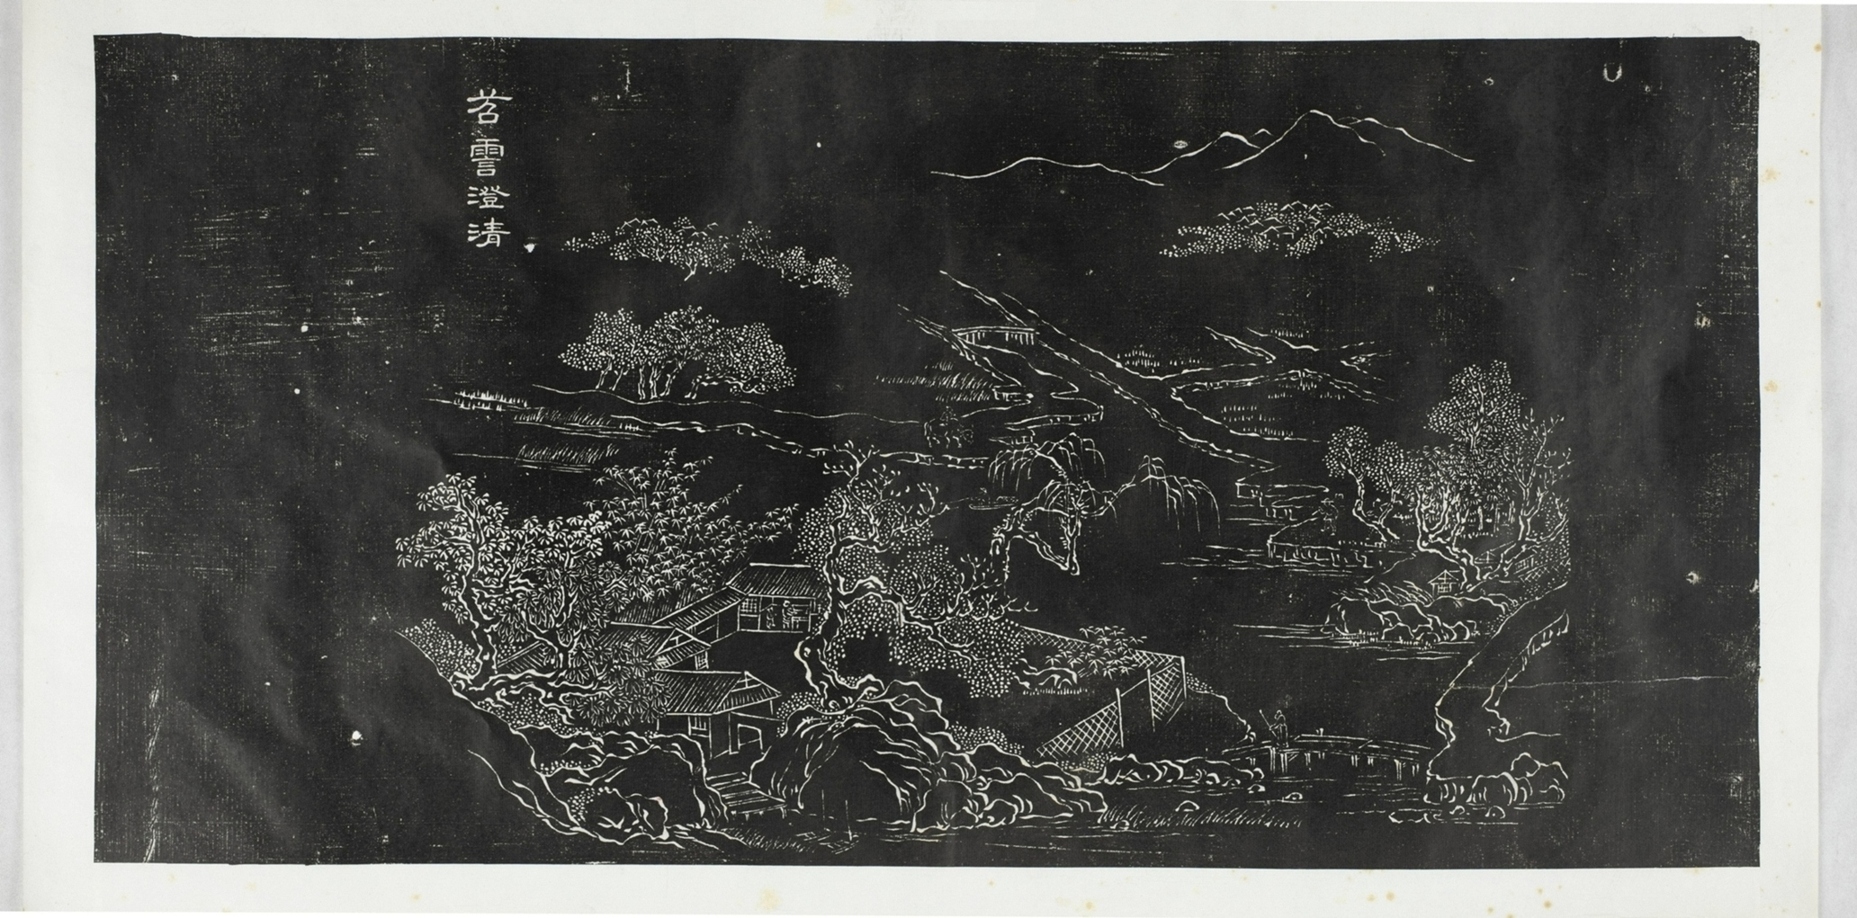 苕霅澄清